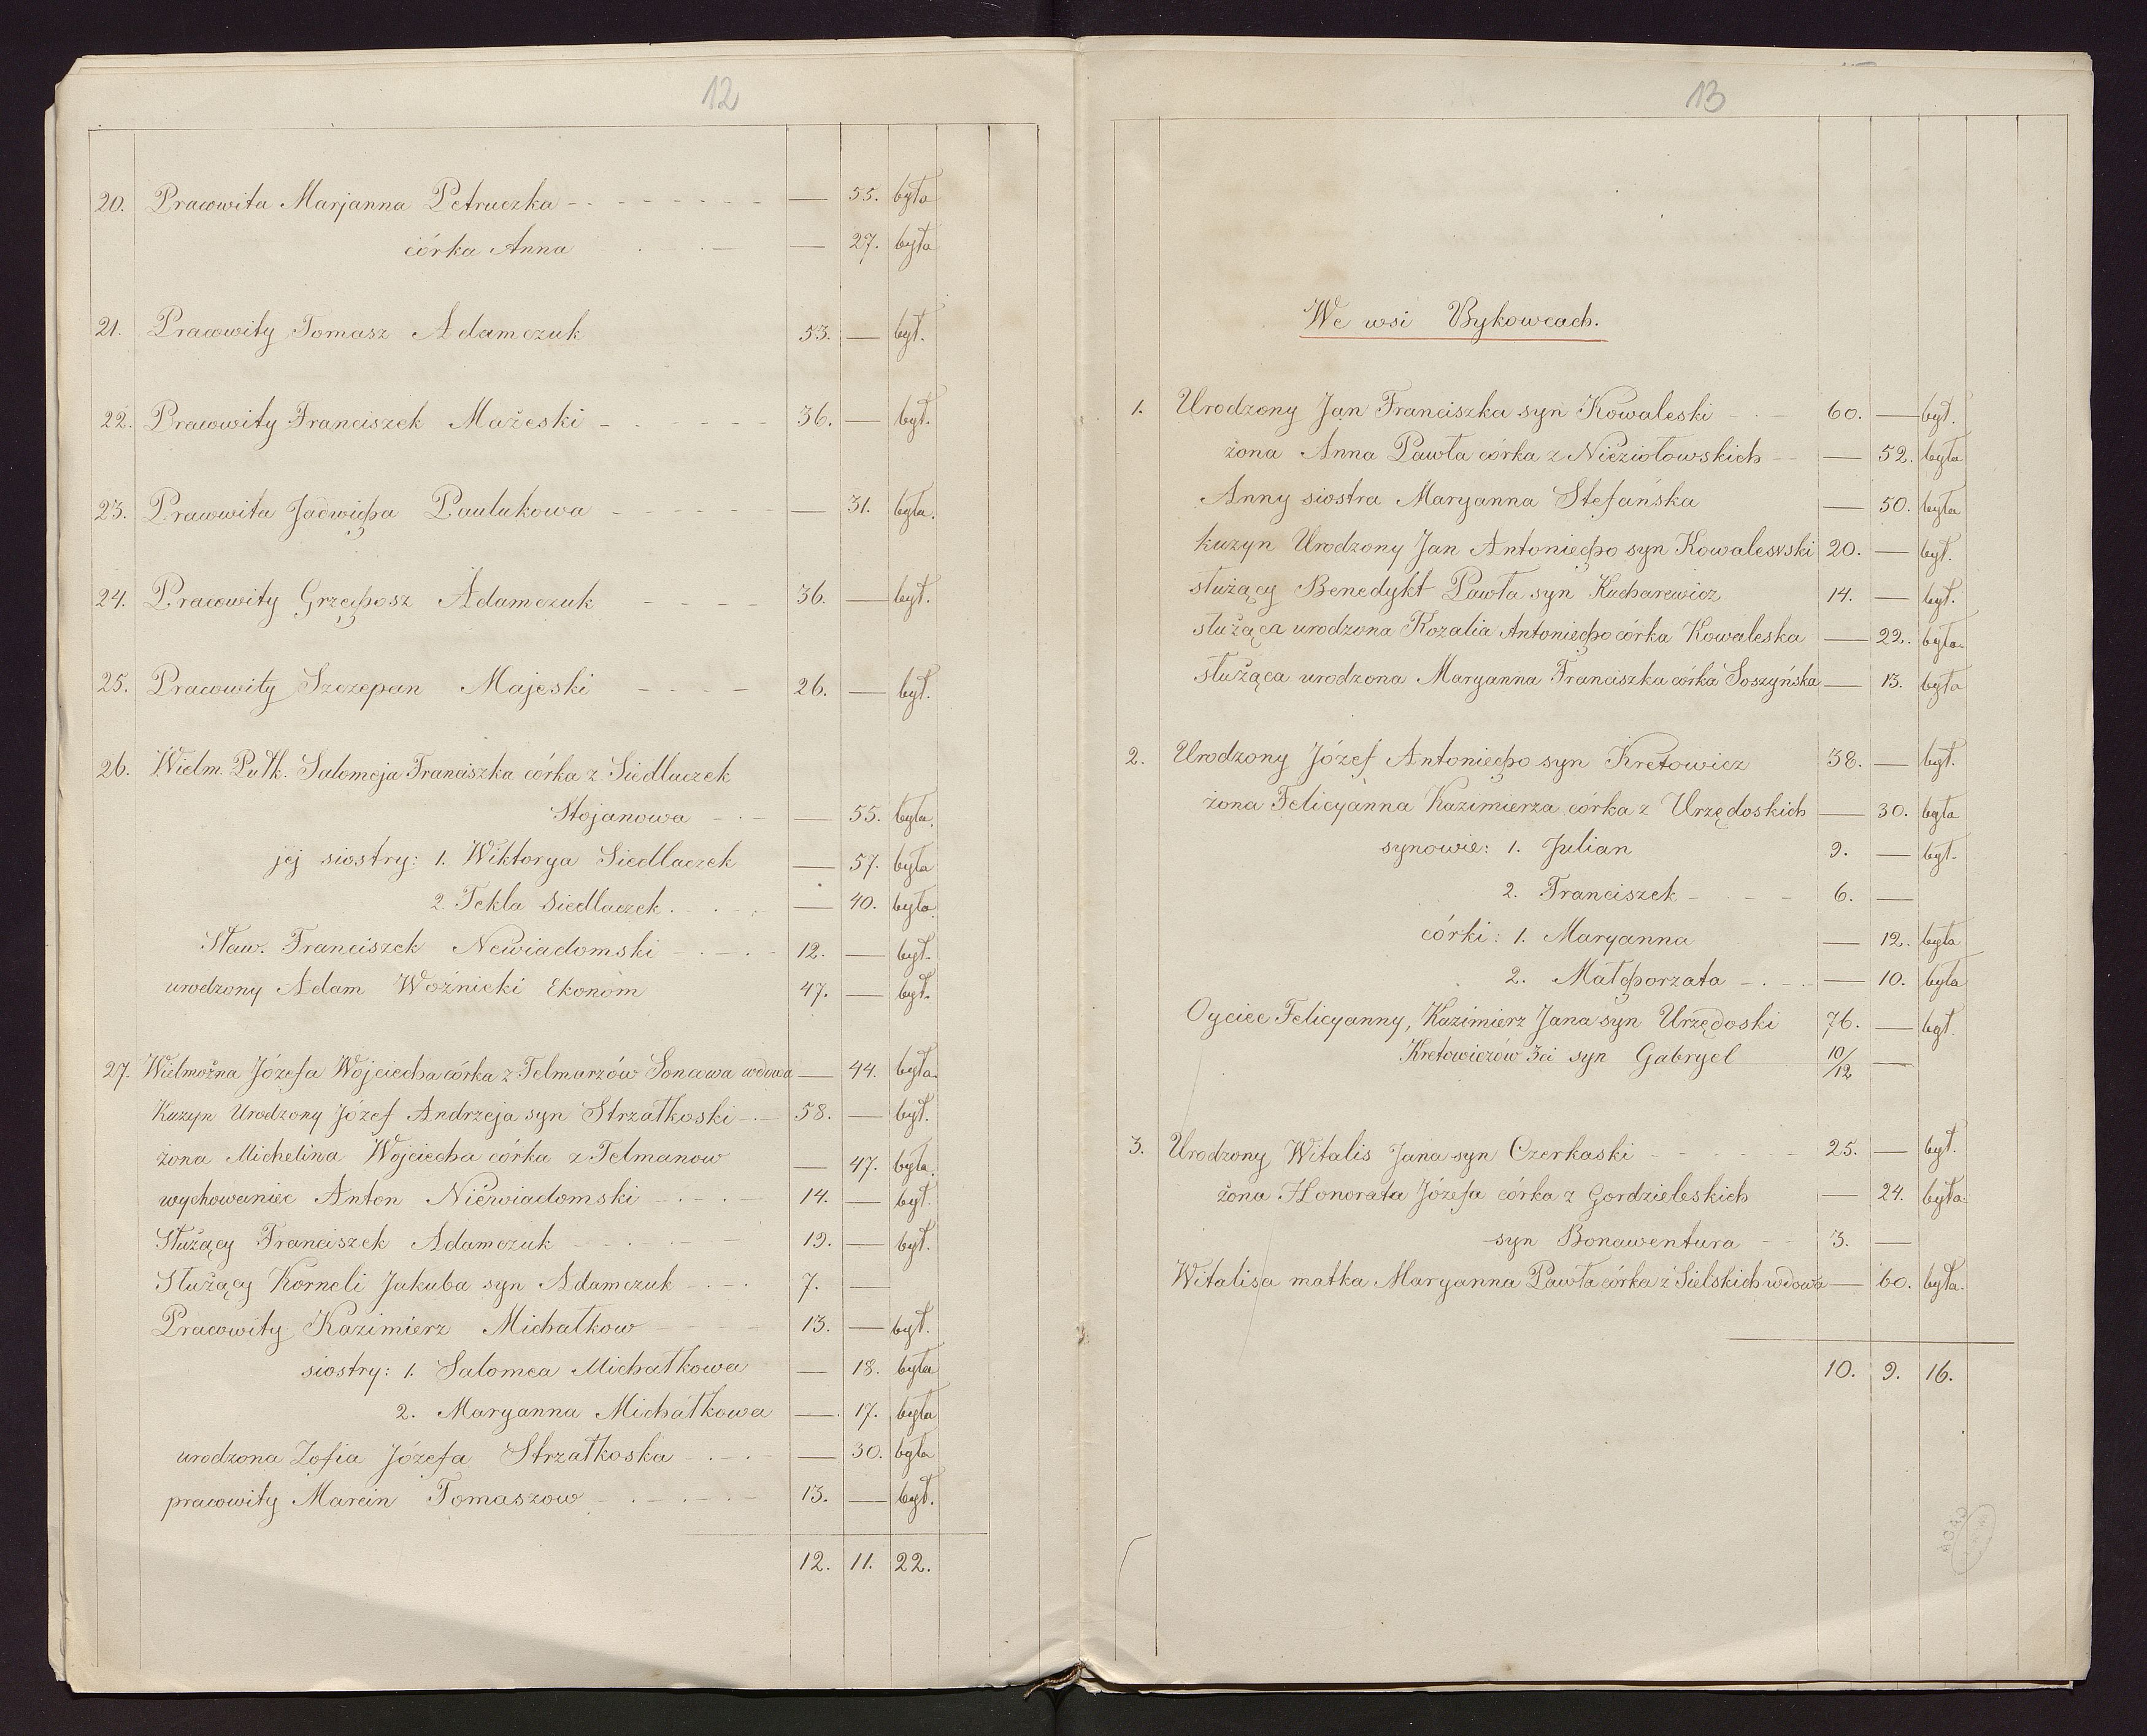 12
20. Pracowita Marjanna Petruczka — 55. była
córka Anna — 27. była
21. Pracowity Tomasz Adamczuk 53. — był.
22. Pracowity Franciszek Mażeski 36. — był.
23. Pracowita Jadwiga Paulukowa — 31. była.
24. Pracowity Grzegosz Adamczuk 36. — był.
25. Pracowity Szczepan Majeski 26. — był.
26. Wielm. Pułk. Salomeja Franciszka córka z Siedlaczek
Stojanowa — 55. była.
jej siostry: 1. Wiktorya Siedlaczek — 57. była
2. Tekla Siedlaczek — 40. była.
Sław. Franciszek Newiadomski 12. — był.
urodzony Adam Woźnicki Ekonom 47. — był.
27. Wielmożna Józefa Wojciecha córka z Telmarzów Soncawa wdowa — 44. była.
Kuzyn Urodzony Józef Andrzeja syn Strzałkoski 58. — był.
żona Michelina Wojciecha córka z Telmanow — 47. była.
wychowaniec Anton Niewiadomski 14. — był.
Służący Franciszek Adamczuk 19. — był.
Służący Korneli Jakuba syn Adamczuk 7. —
Pracowity Kazimierz Michałkow 13. — był.
siostry: 1. Salomea Michałkowa — 18. była
2. Maryanna Michałkowa — 17. była
urodzona Zofia Józefa Strzałkoska — 30. była
pracowity Marcin Tomaszow 13. — był.
12. 11. 22.
13
We wsi Bykowcach.
1. Urodzony Jan Franciszka syn Kowaleski 60. — był.
żona Anna Pawła córka z Nieziołowskich — 52. była
Anny siostra Maryanna Stefańska — 50. była
kuzyn Urodzony Jan Antoniego syn Kowalewski 20. — był.
służący Benedykt Pawła syn Kucharewicz 14. — był.
służąca urodzona Rozalia Antoniego córka Kowaleska — 22. była.
służąca urodzona Maryanna Franciszka córka Soszyńska — 13. była
2. Urodzony Józef Antoniego syn Kretowicz 38. — był.
żona Felicyanna Kazimierza córka z Urzędoskich — 30. była
synowie: 1. Julian 9. — był.
2. Franciszek 6. —
córki: 1. Maryanna — 12. była
2. Małgorzata — 10. była
Oyciec Felicyanny, Kazimierz Jana syn Urzędoski 76. — był.
Kretowiczów 3ci syn Gabryel 10/12 —
3. Urodzony Witalis Jana syn Czerkaski 25. — był.
żona Honorata Józefa córka z Gordzieleskich — 24. była.
syn Bonawentura 3. —
Witalisa matka Maryanna Pawła córka z Sielskich wdowa — 60. była.
10. 9. 16.